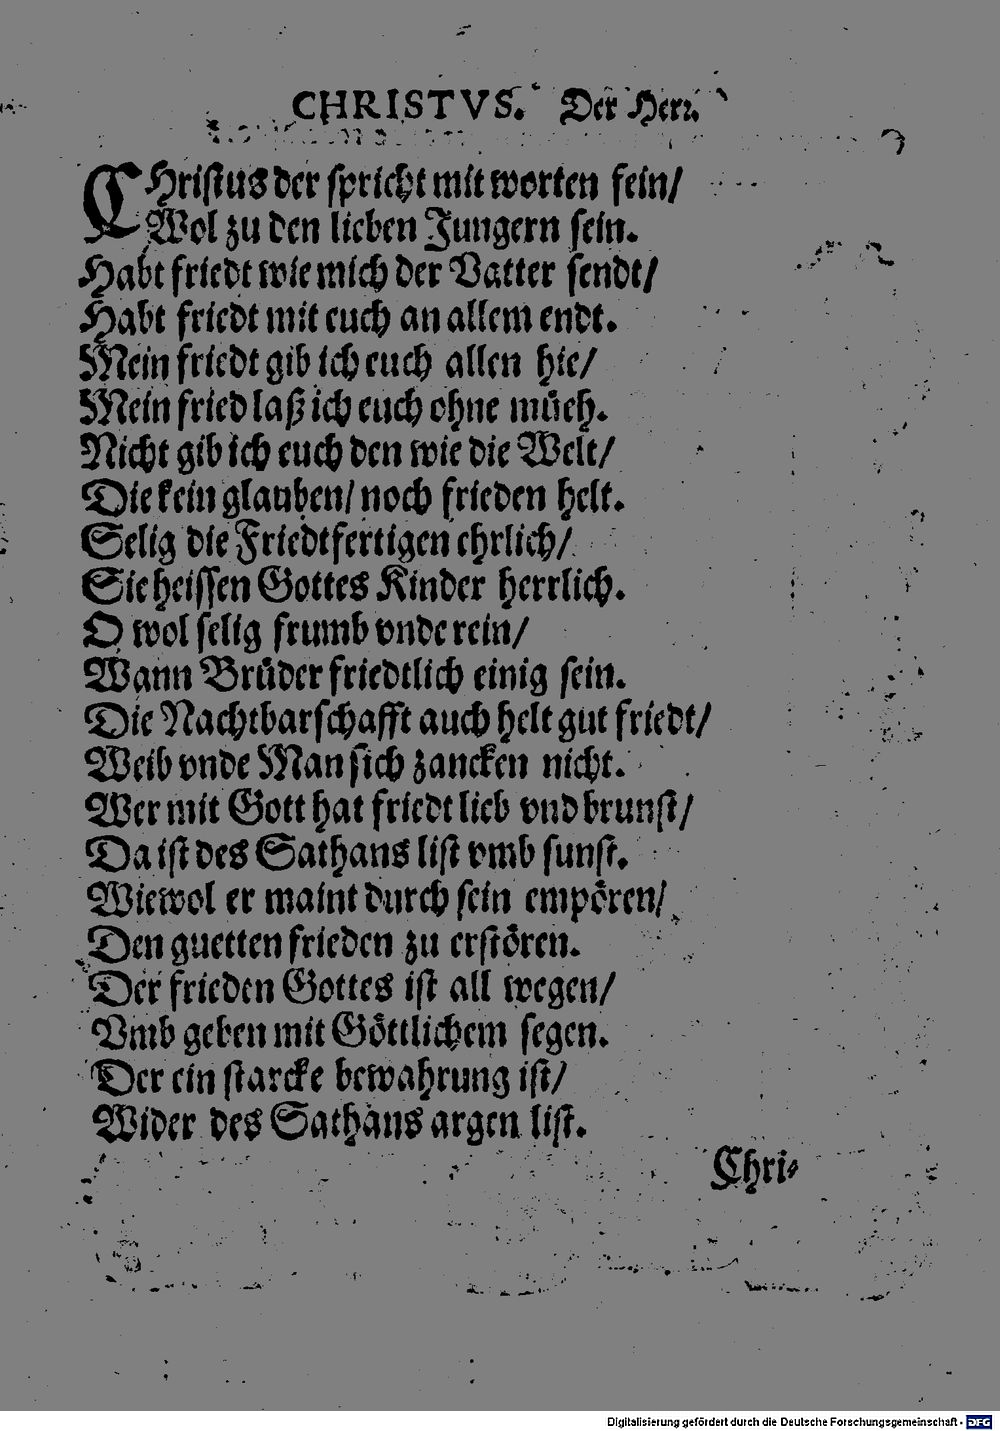 CHRISTVS. Der Herr.
CHriſtus der ſpricht mit worten fein/
Wol zu den lieben Jungern ſein.
Habt friedt wie mich der Vatter ſendt/
Habt friedt mit euch an allem endt.
Mein friedt gib ich euch allen hie/
Mein fried laß ich euch ohne müeh.
Nicht gib ich euch den wie die Welt/
Die kein glauben/ noch frieden helt.
Selig die Friedtfertigen ehrlich/
Sie heiſſen Gottes Kinder herrlich.
O wol ſelig frumb vnde rein/
Wann Brüder friedtlich einig ſein.
Die Nachtbarſchafft auch helt gut friedt/
Weib vnde Man ſich zancken nicht.
Wer mit Gott hat friedt lieb vnd brunſt/
Da iſt des Sathans liſt vmb ſunſt.
Wiewol er maint durch ſein empören/
Den guetten frieden zu erſtören.
Der frieden Gottes iſt all wegen/
Vmb geben mit Göttlichem ſegen.
Der ein ſtarcke bewahrung iſt/
Wider des Sathans argen liſt.
Chri⸗
Digitalisierung gefördert durch die Deutsche Forschungsgemeinschaft - DFG